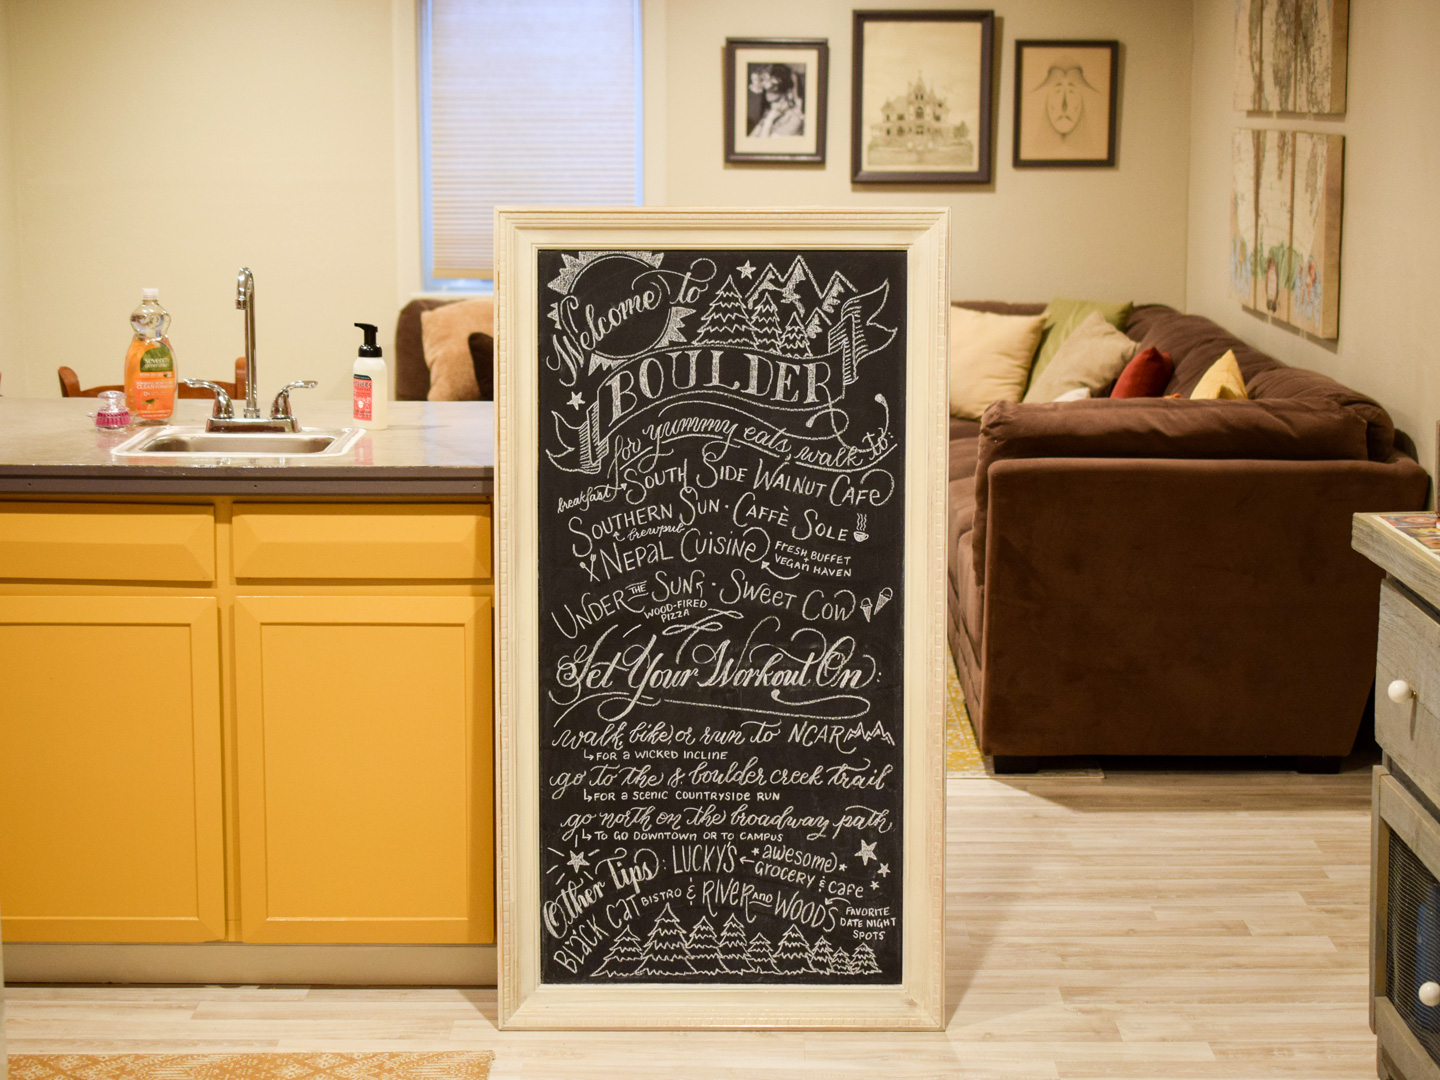 Welcome to
BOULDER
for yummy eats, walk to:
breakfast SOUTH SIDE WALNUT CAFE
SOUTHERN SUN · CAFFÈ SOLE
brewpub
NEPAL CUISINE FRESH BUFFET + VEGAN HAVEN
UNDER THE SUN · SWEET COW
WOOD-FIRED PIZZA
Get Your Workout On:
walk bike or run to NCAR
FOR A WICKED INCLINE
go to the s. boulder creek trail
FOR A SCENIC COUNTRYSIDE RUN
go north on the broadway path
TO GO DOWNTOWN OR TO CAMPUS
Other Tips: LUCKY'S *awesome* GROCERY & CAFE
BLACK CAT BISTRO & RIVER AND WOODS FAVORITE DATE NIGHT SPOTS